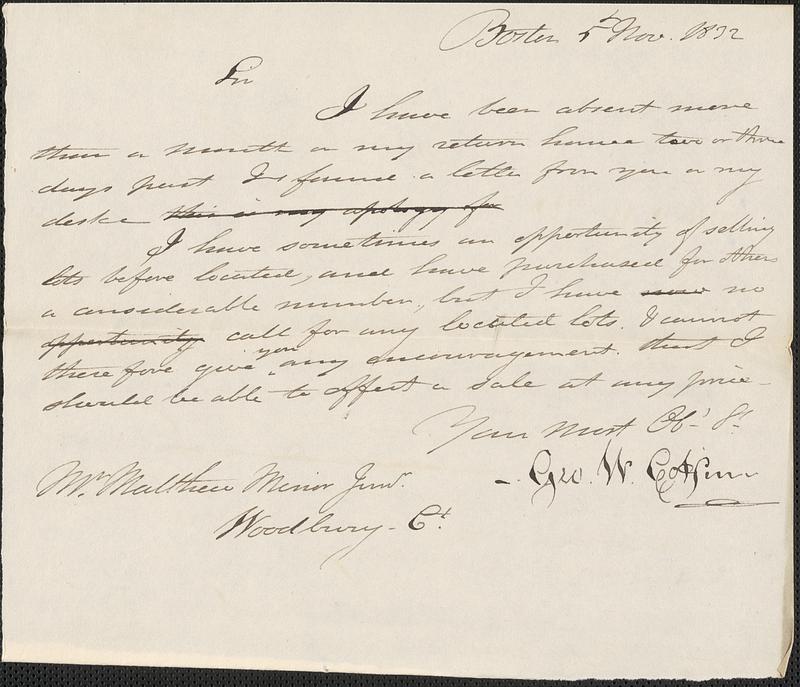 Boston 5th Nov. 1832
Sir
I have been absent more
than a month on my return home two or three
days past I found a letter from you on my
deske this is my apology for
I have sometimes an opportunity of selling
lots before located, and have purchased for others
a considerable number, but I have now no
opportunity call for any located lots. I cannot
therefore give you any encouragement that I
should be able to effect a sale at any price
Your most Obt. St.
Geo. W. Coffin
Mr. Matthew Minor Junr.
Woodbury - Ct.